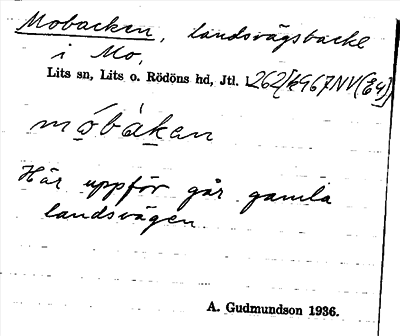 Mobacken, landsvägsbacke
i Mo,
Lits sn, Lits o. Rödöns hd, Jtl.
móbàkan
Här uppför går gamla
landsvägen.
A. Gudmundson 1936.